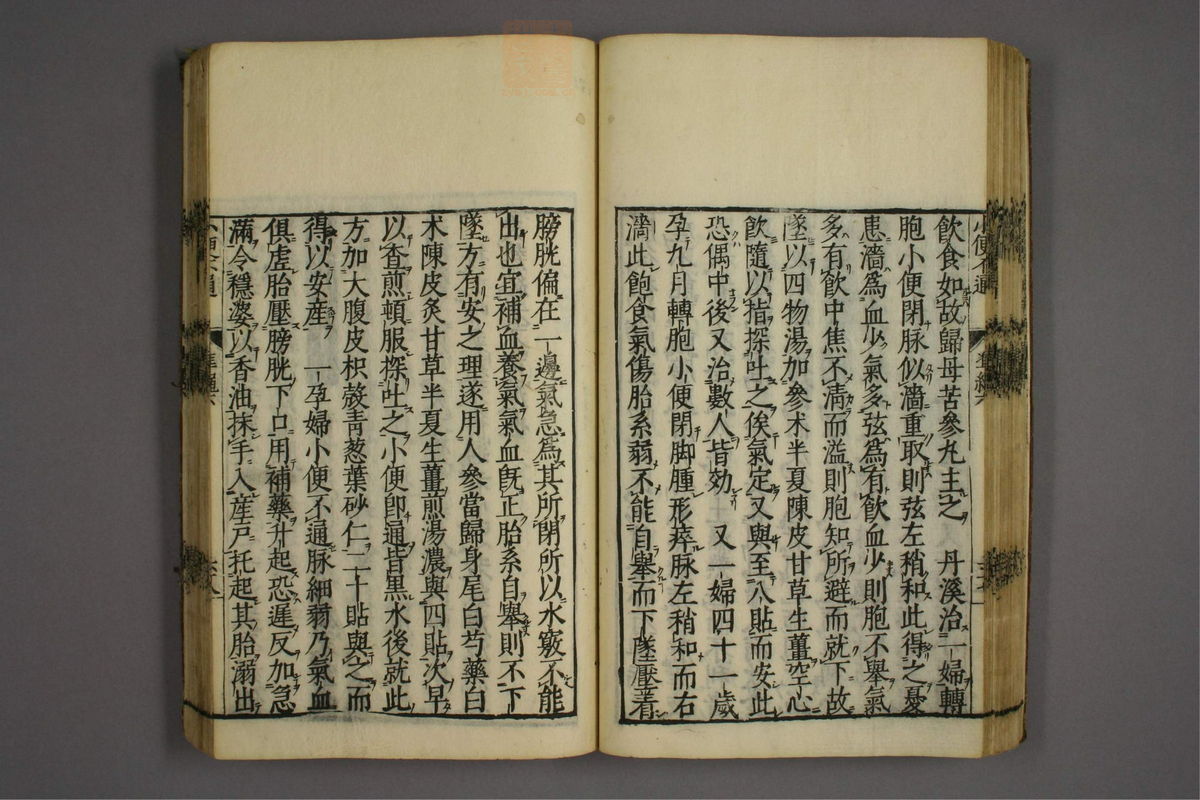 飲食如故歸母苦參丸主之　丹溪治一婦轉
胞小便閉脉似濇重取則弦左稍和此得之憂
患濇爲血少氣多弦爲有飲血少則胞不舉氣
多有飲中焦不淸而溢則胞知所避而就下故
墜以四物湯加參术半夏陳皮甘草生薑空心
飲隨以指探吐之俟氣定又與至八貼而安此
恐偶中後又治數人皆効　又一婦四十一歲
孕九月轉胞小便閉脚腫形瘁脉左稍和而右
濇此飽食氣傷胎系弱不能自舉而下墜壓着
膀胱偏在一邊氣急爲其所閉所以水竅不能
出也宜補血養氣氣血旣正胎系自舉則不下
墜方有安之理遂用人參當歸身尾白芍藥白
术陳皮炙甘草半夏生薑煎湯濃與四貼次早
以查煎頓服探吐之小便卽通皆黑水後就此
方加大腹皮枳殼靑葱葉砂仁二十貼與之而
得以安産　一孕婦小便不通脉細弱乃氣血
俱虛胎壓膀胱下口用補藥升起恐遲反加急
滿令穩婆以香油抹手入産戶托起其胎溺出